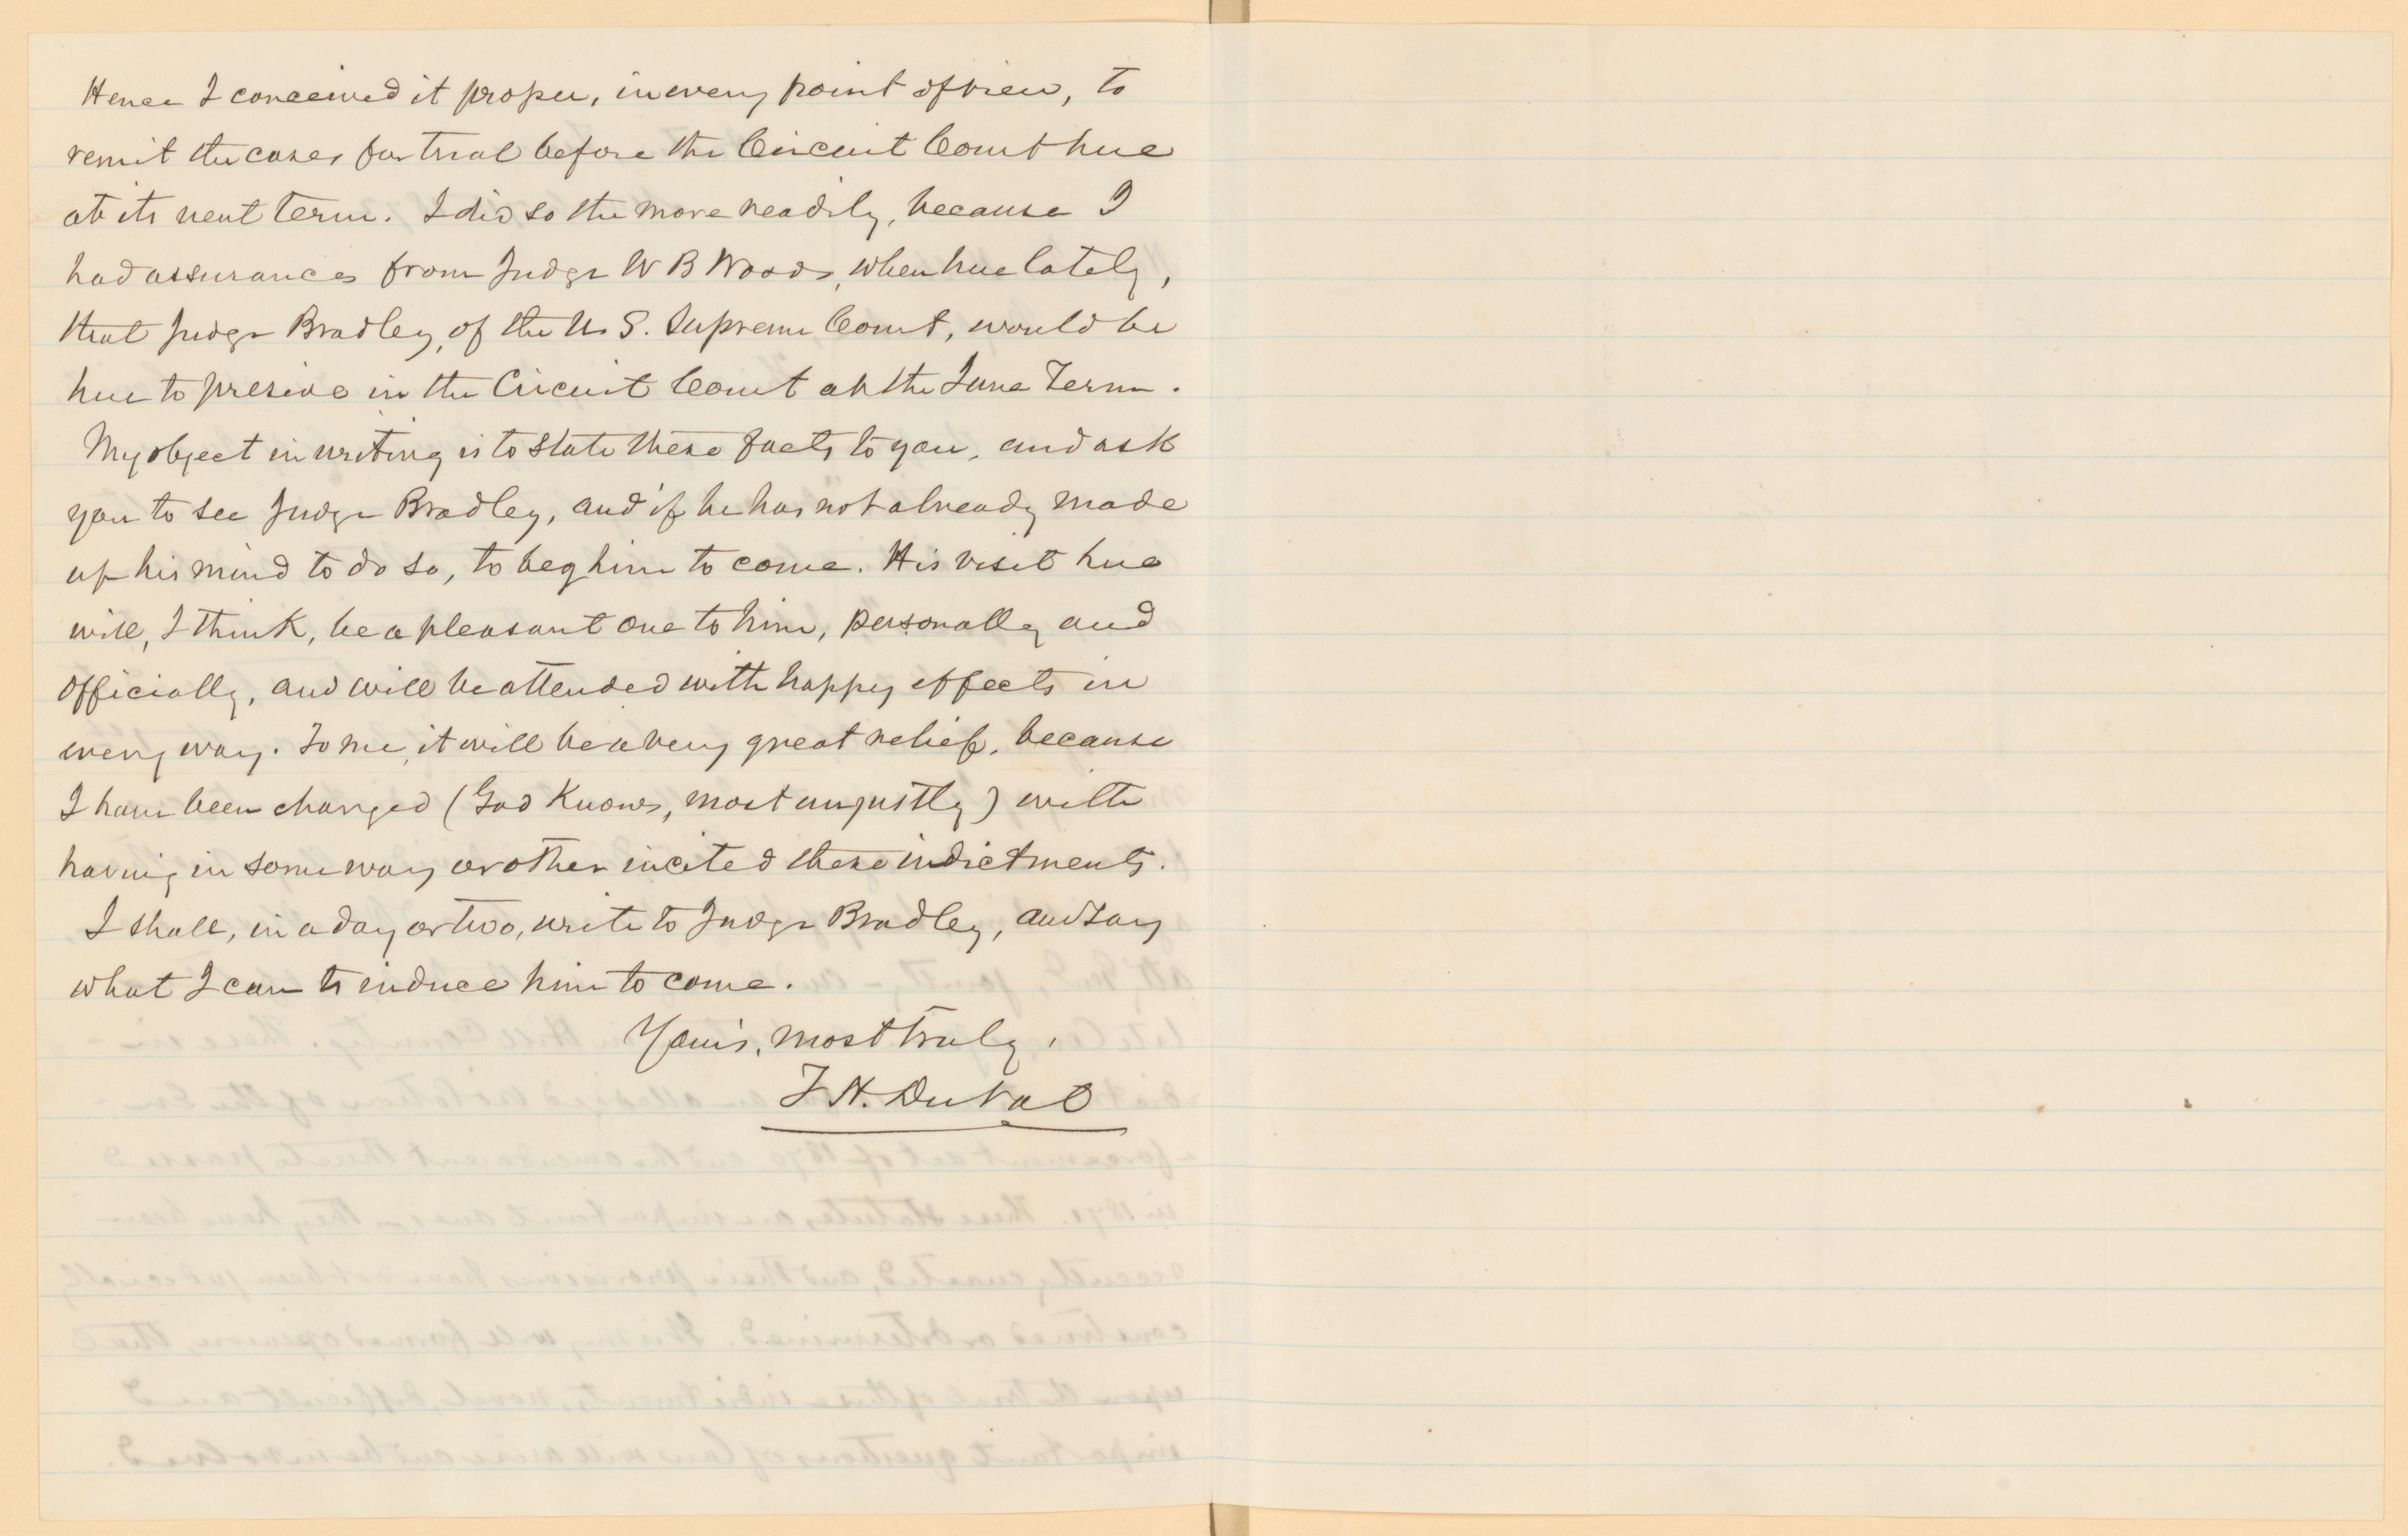 Hence I conceived it proper, in every point of view, to
remit the cases for trial before the Circuit Court here
at its next term. I did so the more readily, because I
had assurances from Judge W B Woods, when here lately,
that Judge Bradley, of the U. S. Supreme Court, would be
here to preside in the Circuit Court at the June Term.
My object in writing is to state these facts to you, and ask
you to see Judge Bradley, and if he has not already made
up his mind to do so, to beg him to come. His visit here
will, I think, be a pleasant one to him, personally and
officially, and will be attended with happy effects in
every way. To me, it will be a very great relief, because
I have been charged (God knows, most unjustly) with
having in some way or other incited these indictments.
I shall, in a day or two, write to Judge Bradley, and say
what I can to induce him to come.
Yours, most truly,
T H. Duval